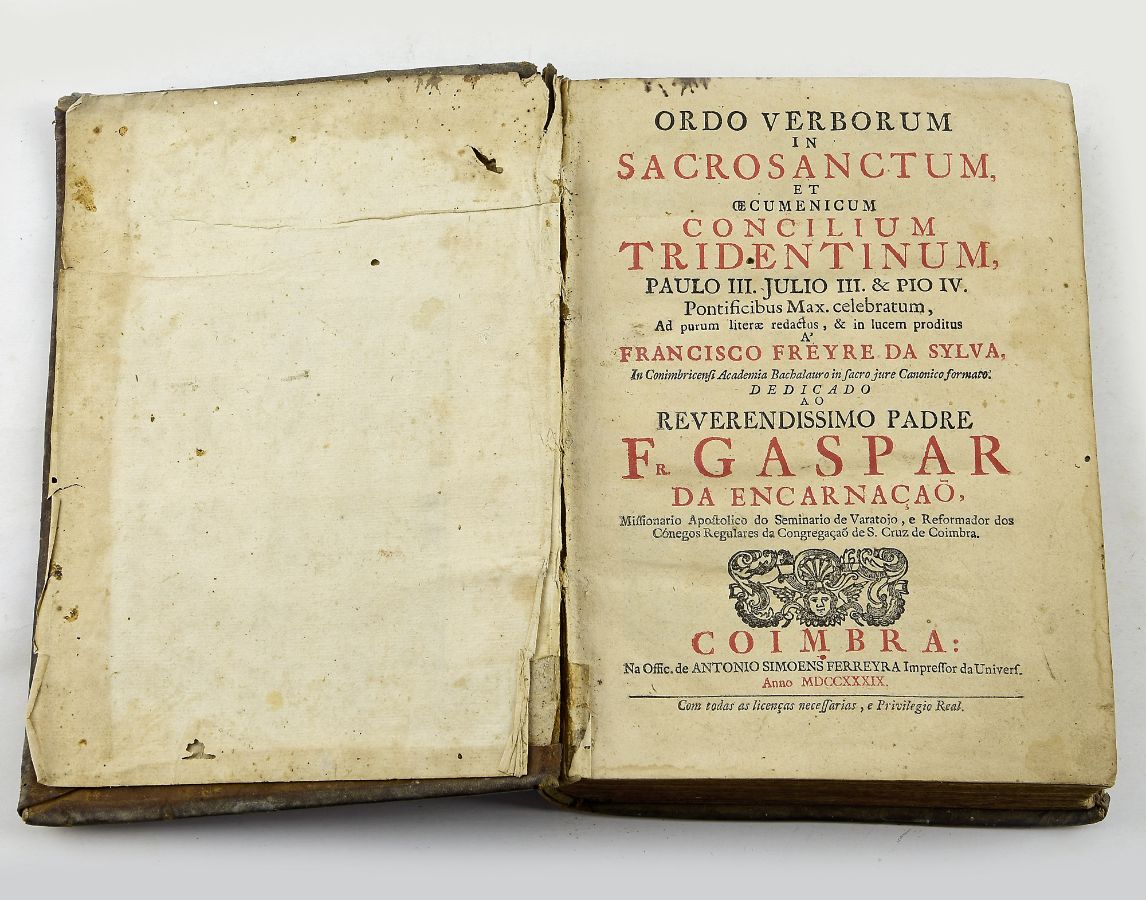 ORDO VERBORUM
IN
SACROSANCTUM,
ET
ŒCUMENICUM
CONCILIUM
TRIDENTINUM,
PAULO III. JULIO III. & PIO IV.
Pontificibus Max. celebratum,
Ad purum literæ redactus, & in lucem proditus
A'
FRANCISCO FREYRE DA SYLVA,
In Conimbricensi Academia Bachalauro in sacro jure Canonico formato.
DEDICADO
AO
REVERENDISSIMO PADRE
FR. GASPAR
DA ENCARNAÇAÕ,
Missionario Apostolico do Seminario de Varatojo, e Reformador dos
Cónegos Regulares da Congregaçaõ de S. Cruz de Coimbra.
COIMBRA:
Na Offic. de ANTONIO SIMOENS FERREYRA Impressor da Univers.
Anno MDCCXXXIX.
Com todas as licenças necessarias, e Privilegio Real.